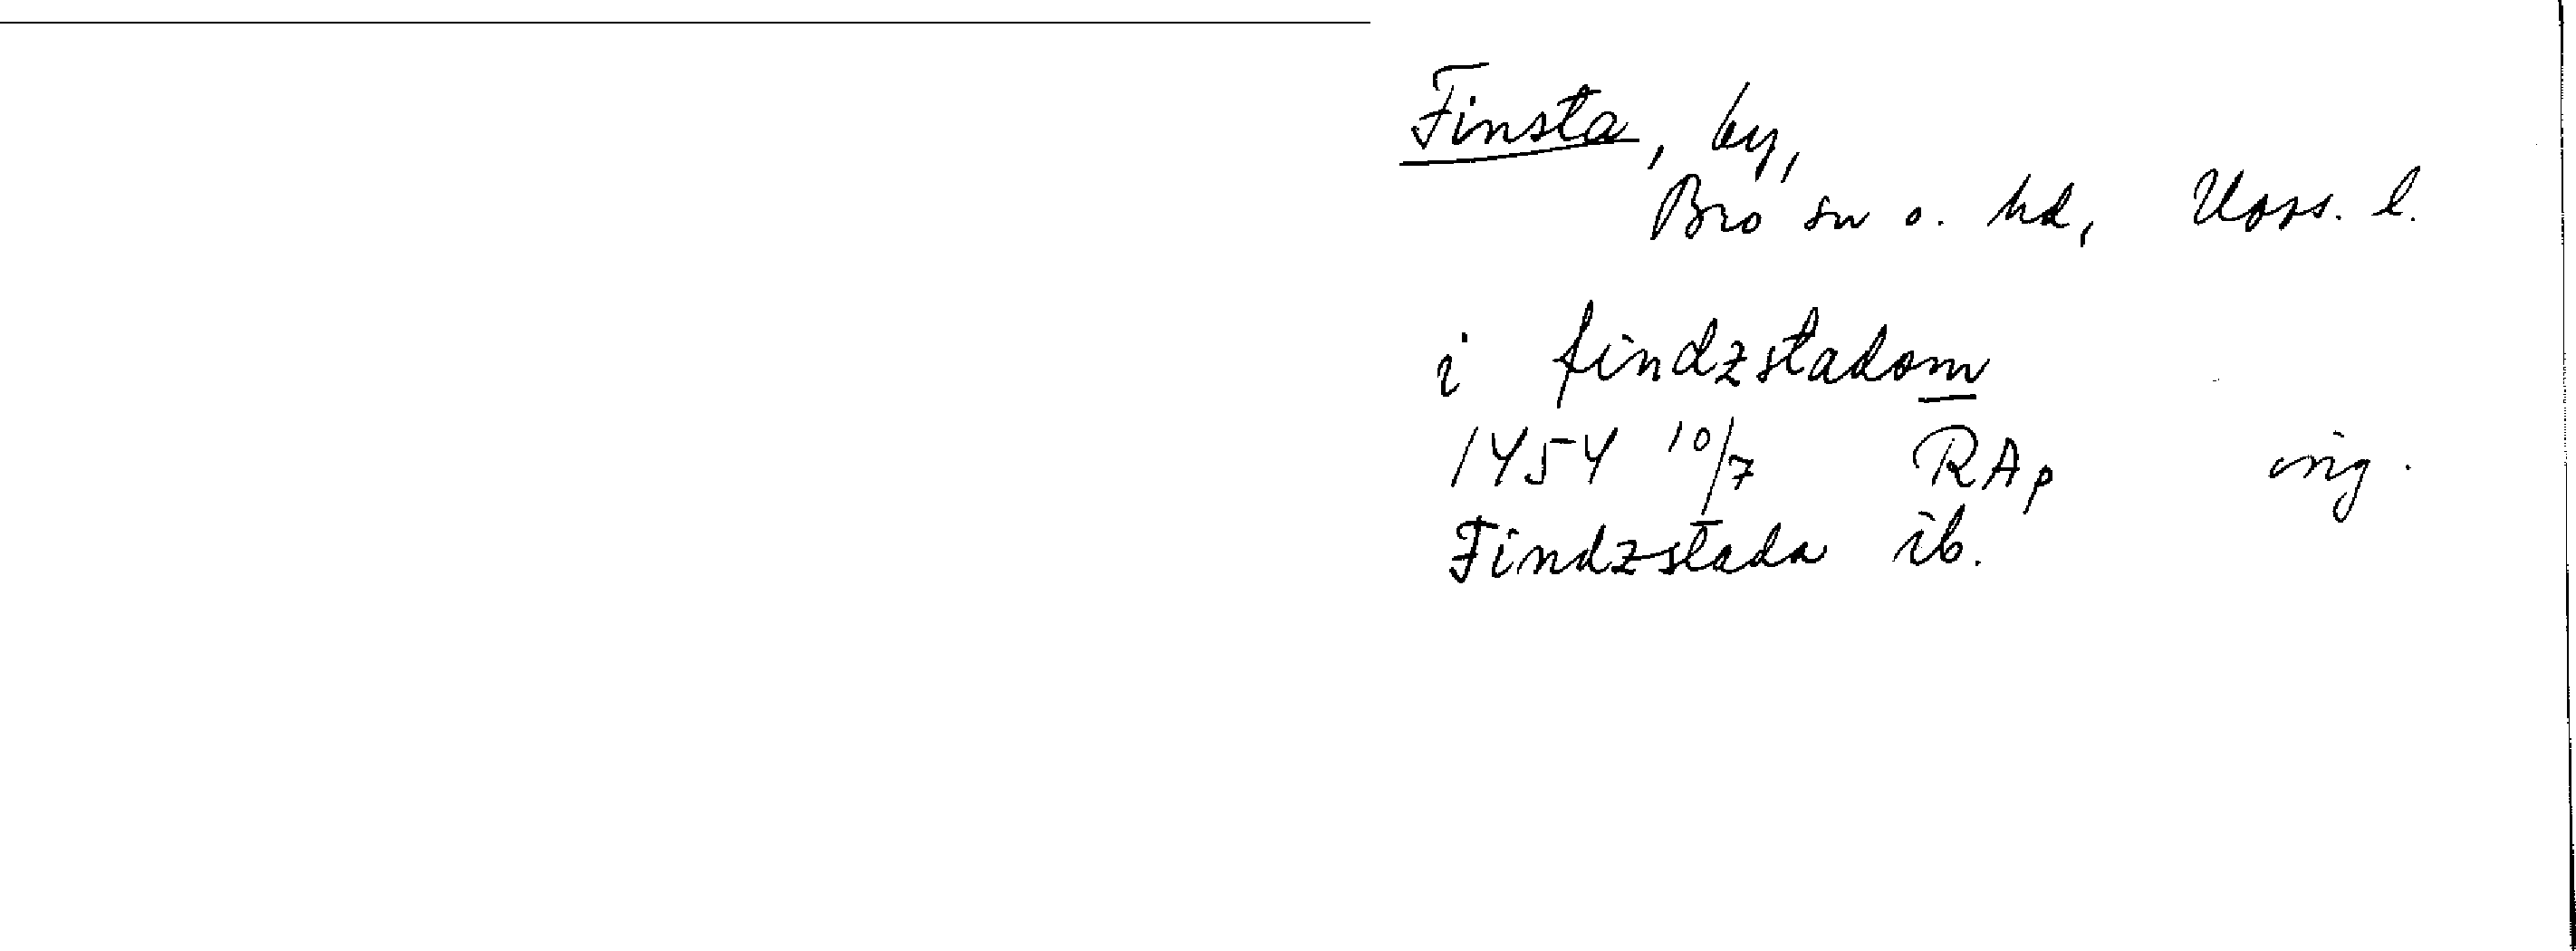 Finsta, by,
Bro sn o. hd, Upps. l.
i findzstadom
1454 10/7 RAp orig.
Findzstada ib.